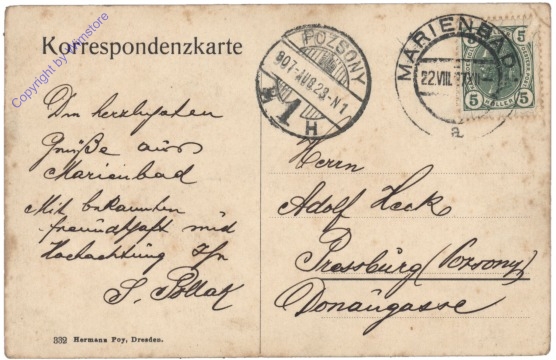 Korrespondenzkarte
Copyright by filmstore
POZSONY
907 AUG 23 N1
1
H
MARIENBAD
22 VIII
a
5 5
HELLER
5 5
Die herzlichsten
Grüße aus
Marienbad
Mit bekannten
freundschaft und
Hochachtung Ihr
S. Pollak
Herrn
Adolf Heck
Pressburg (Pozsony)
Donaugasse
332 Hermann Poy, Dresden.